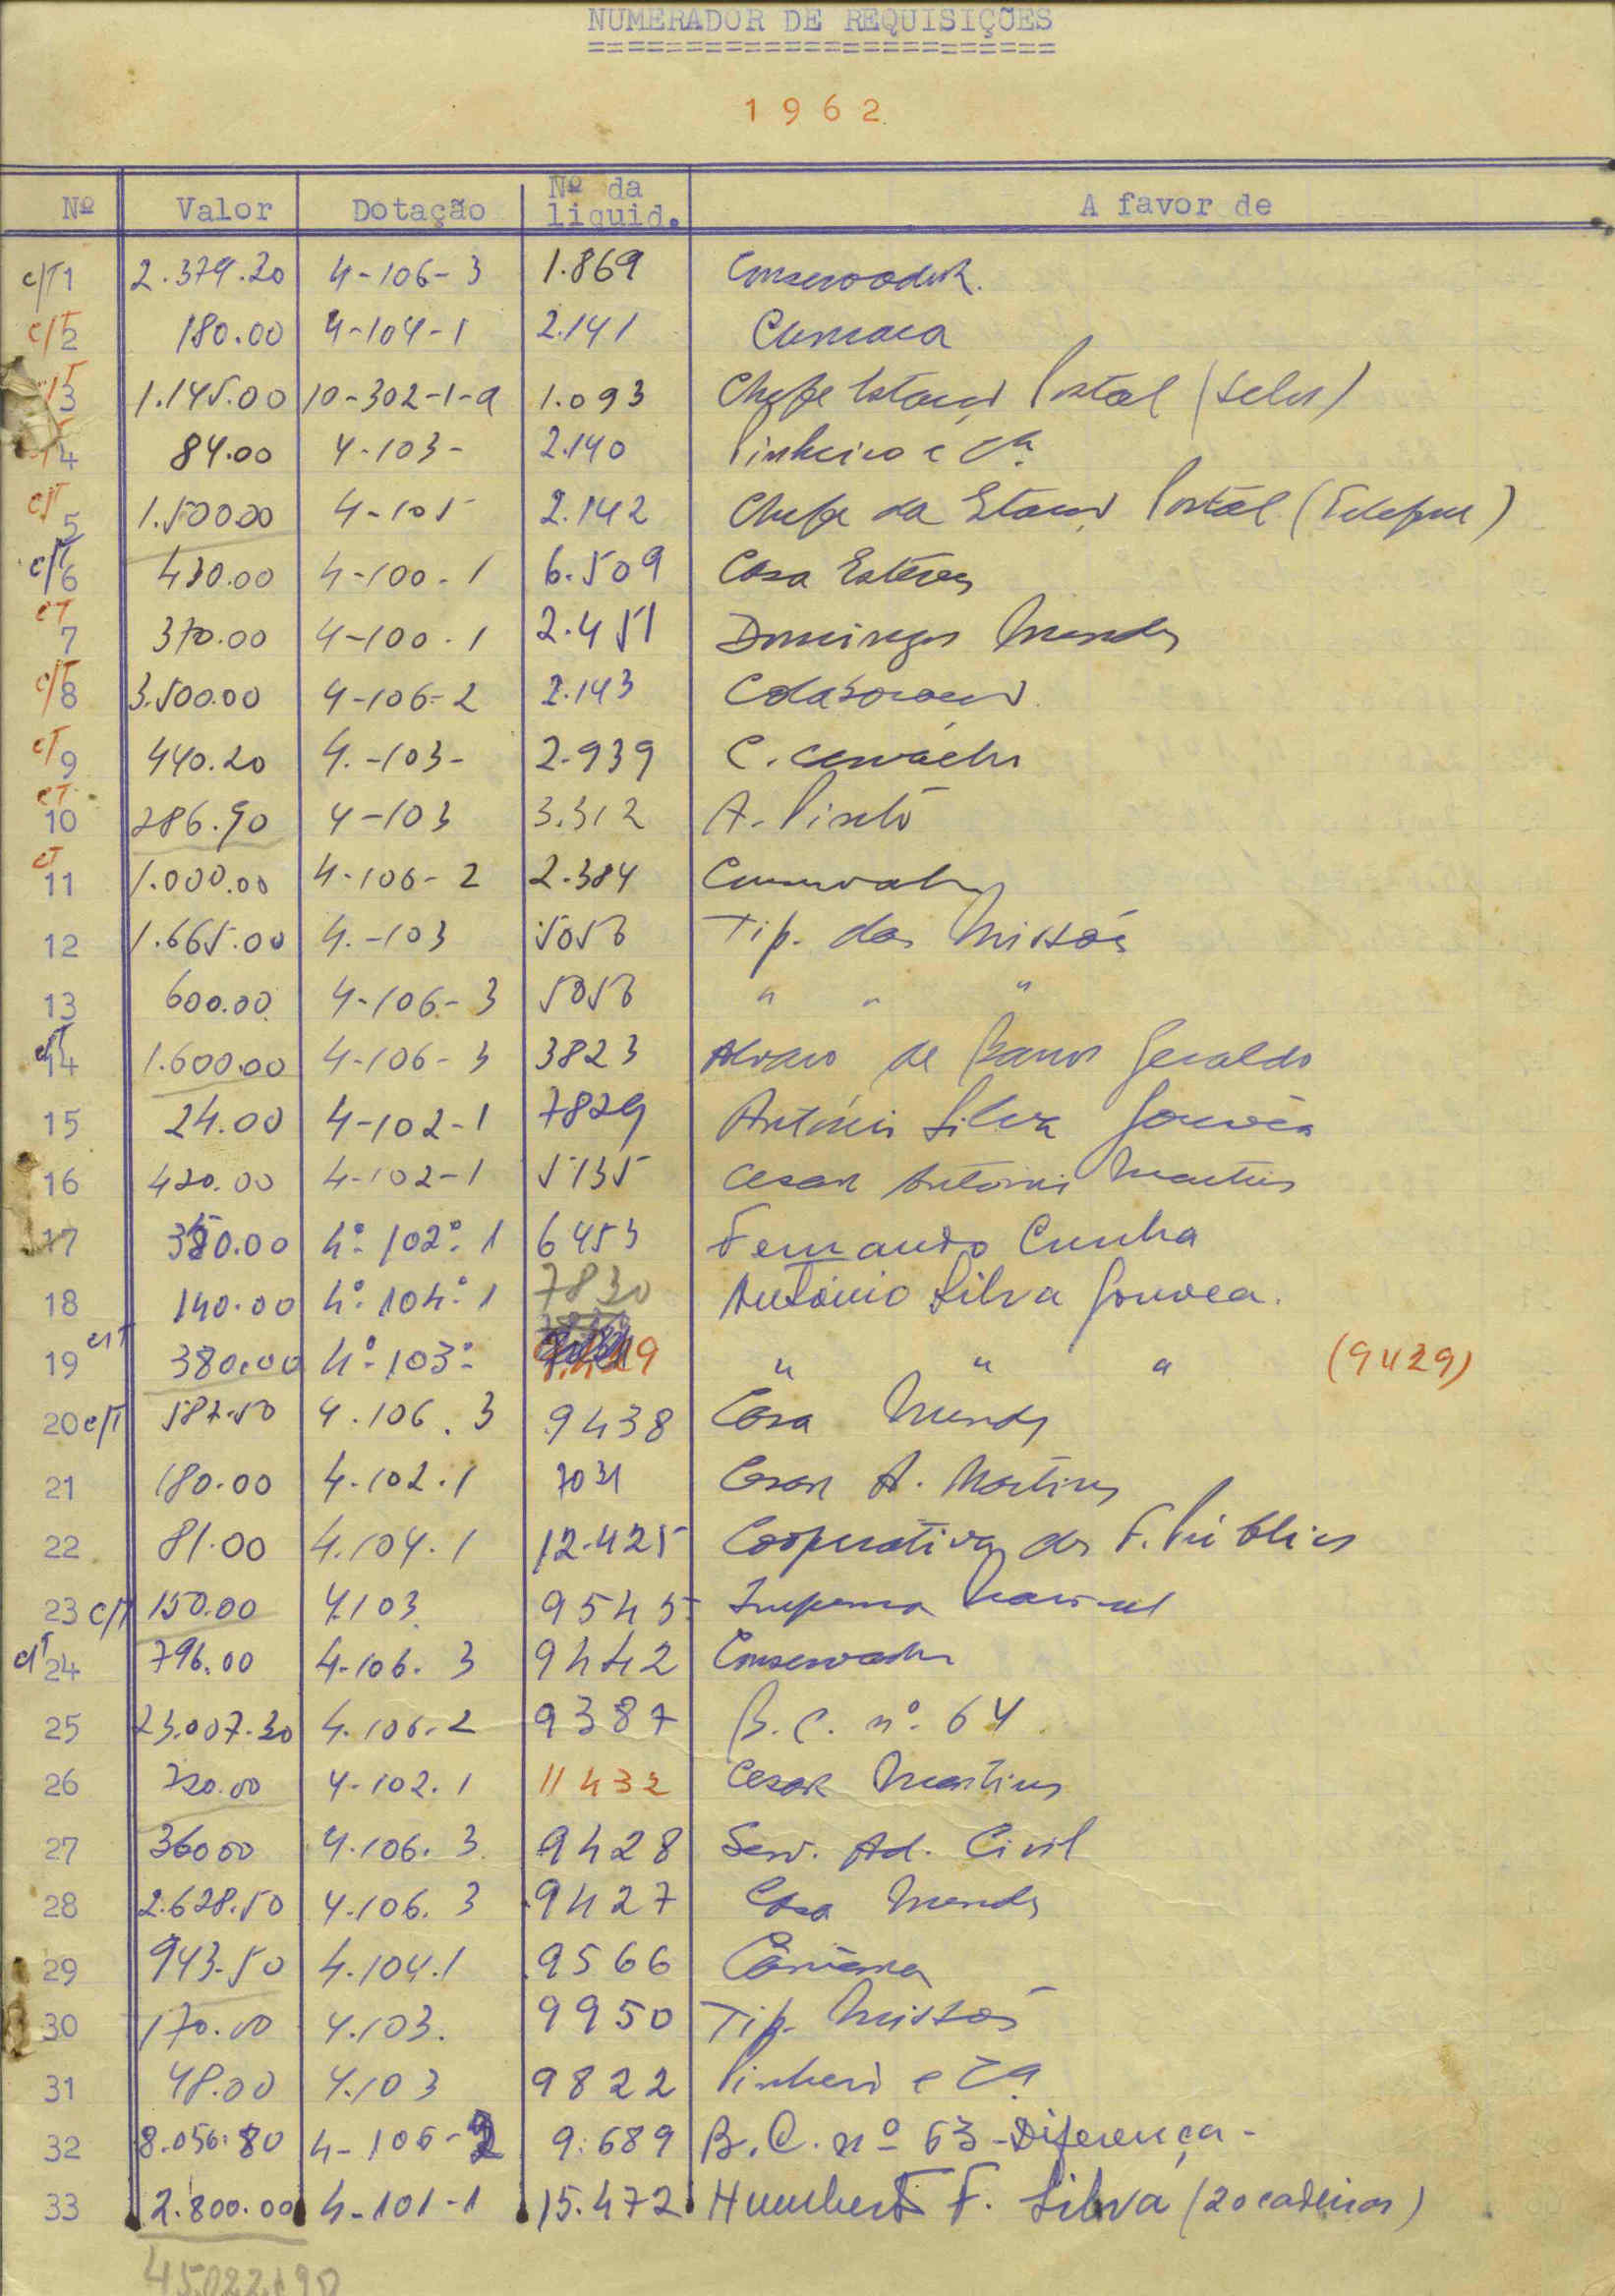 NUMERADOR DE REQUISIÇÕES
1962
Nº Valor Dotação Nº da liquid. A favor de
c/T 1 2.379.20 4-106-3 1.869 Conservador.
c/T 2 180.00 4-104-1 2.141 Camara
3 1.145.00 10-302-1-a 1.093 Chefe Estação Postal (Selos)
4 84.00 4-103- 2.140 Pinheiro e Cª
c/T 5 1.500.00 4-105 2.142 Chefe da Estação Postal (Telefone)
c/T 6 430.00 4-100-1 6.509 Casa Esteves
cT 7 370.00 4-100.1 2.451 Domingos Mendes
c/T 8 3.500.00 4-106-2 2.143 Colaboração
cT 9 440.20 4.-103- 2.939 C.
cT 10 286.90 4-103 3.312 A. Pinto
cT 11 1.000.00 4-106-2 2.384
12 1.665.00 4.-103 5058 Tip. das Missões
13 600.00 4-106-3 5058 " " "
c/T 14 1.600.00 4-106-3 3823 Alvaro de Barros Geraldo
15 24.00 4-102-1 7829 António Silva Gouvêa
16 420.00 4-102-1 5135 Cesar Antonio Martins
17 350.00 4º-102º-1 6453 Fernando Cunha
18 140.00 4º-104º-1 7830 António Silva Gouvea.
19 c/T 380.00 4º-103º- " " " (9429)
20 c/T 587.50 4.106.3 9438 Casa Mendes
21 180.00 4.102.1 7031 Cesar A. Martins
22 81.00 4.104.1 12.425 Cooperativa dos F. Públicos
23 c/T 150.00 4.103 9545 Imprensa Nacional
c/T 24 796.00 4-106.3 9442 Conservador
25 23.007.30 4.106.2 9387 B.C. nº 64
26 720.00 4-102.1 11432 Cesar Martins
27 360 00 4.106.3 9428 Serv. Ad. Civil
28 2.628.50 4.106.3 9427 Casa Mendes
29 943.50 4.104.1 9566 Câmara
30 170.00 4.103. 9950 Tip. Missões
31 48.00 4.103 9822 Pinheiro e Cª
32 8.056.80 4-106-2 9.689 B.C. nº 63 - Diferença -
33 2.800.00 4-101-1 15.472 Humberto F. Silva (20 cadeiras)
45.022.90